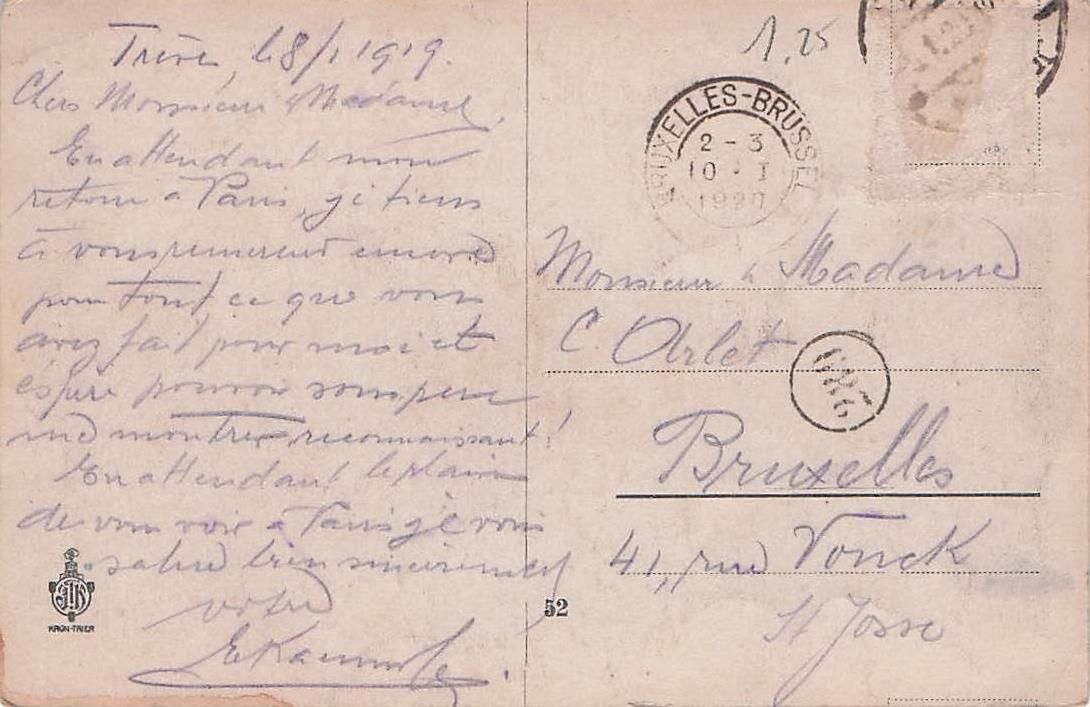 1,25
Trèves, le 8/1 1919.
Chers Monsieur & Madame,
En attendant mon
retour à Paris, je tiens
à vous remercier encore
pour tout ce que vous
avez fait pour moi et
espère pouvoir
me montrer reconnaissant!
En attendant le plaisir
de vous voir à Paris je vous
salue bien sincèrement
votre
KRON-TRIER
52
BRUXELLES-BRUSSEL
2 - 3
10 · I
1920
Monsieur & Madame
C. Arlet
Bruxelles
41, rue Vonck
St Josse